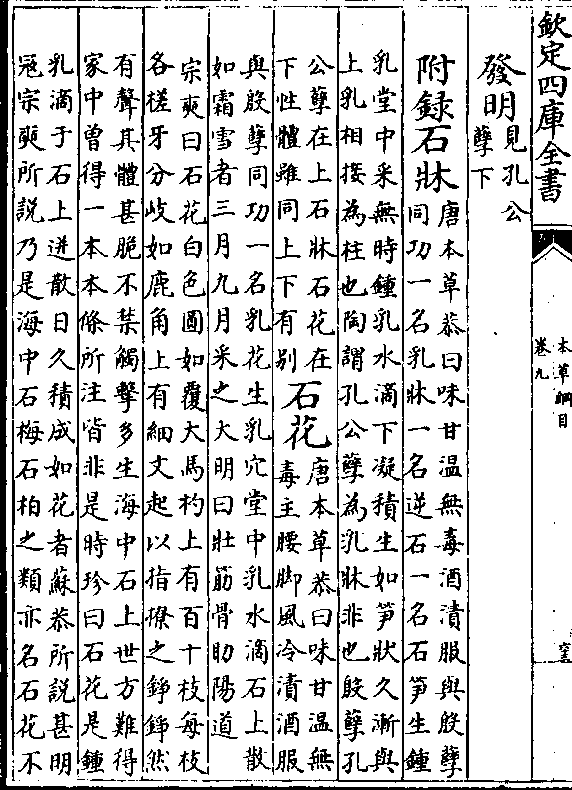 欽定四庫全書
本草綱目
卷九
發明見孔公
孽下
附録石牀唐本草恭曰味甘溫無毒酒漬服與殷孽
同功一名乳牀一名逆石一名石笋生鍾
乳堂中采無時鍾乳水滴下凝積生如笋狀久漸與
上乳相接為柱也陶謂孔公孽為乳牀非也殷孽孔
公孽在上石牀石花在
下性體雖同上下有别
石花唐本草恭曰味甘溫無
毒主腰脚風冷漬酒服
與殷孽同功一名乳花生乳穴堂中乳水滴石上散
如霜雪者三月九月采之大明曰壯筋骨助陽道
宗奭曰石花白色圓如覆大馬杓上有百十枝每枝
各槎牙分岐如鹿角上有細文起以指撩之錚錚然
有聲其體甚脆不禁觸擊多生海中石上世方難得
家中曾得一本本條所注皆非是時珍曰石花是鍾
乳滴于石上迸散日久積成如花者蘇恭所説甚明
寇宗奭所説乃是海中石梅石柏之類亦名石花不